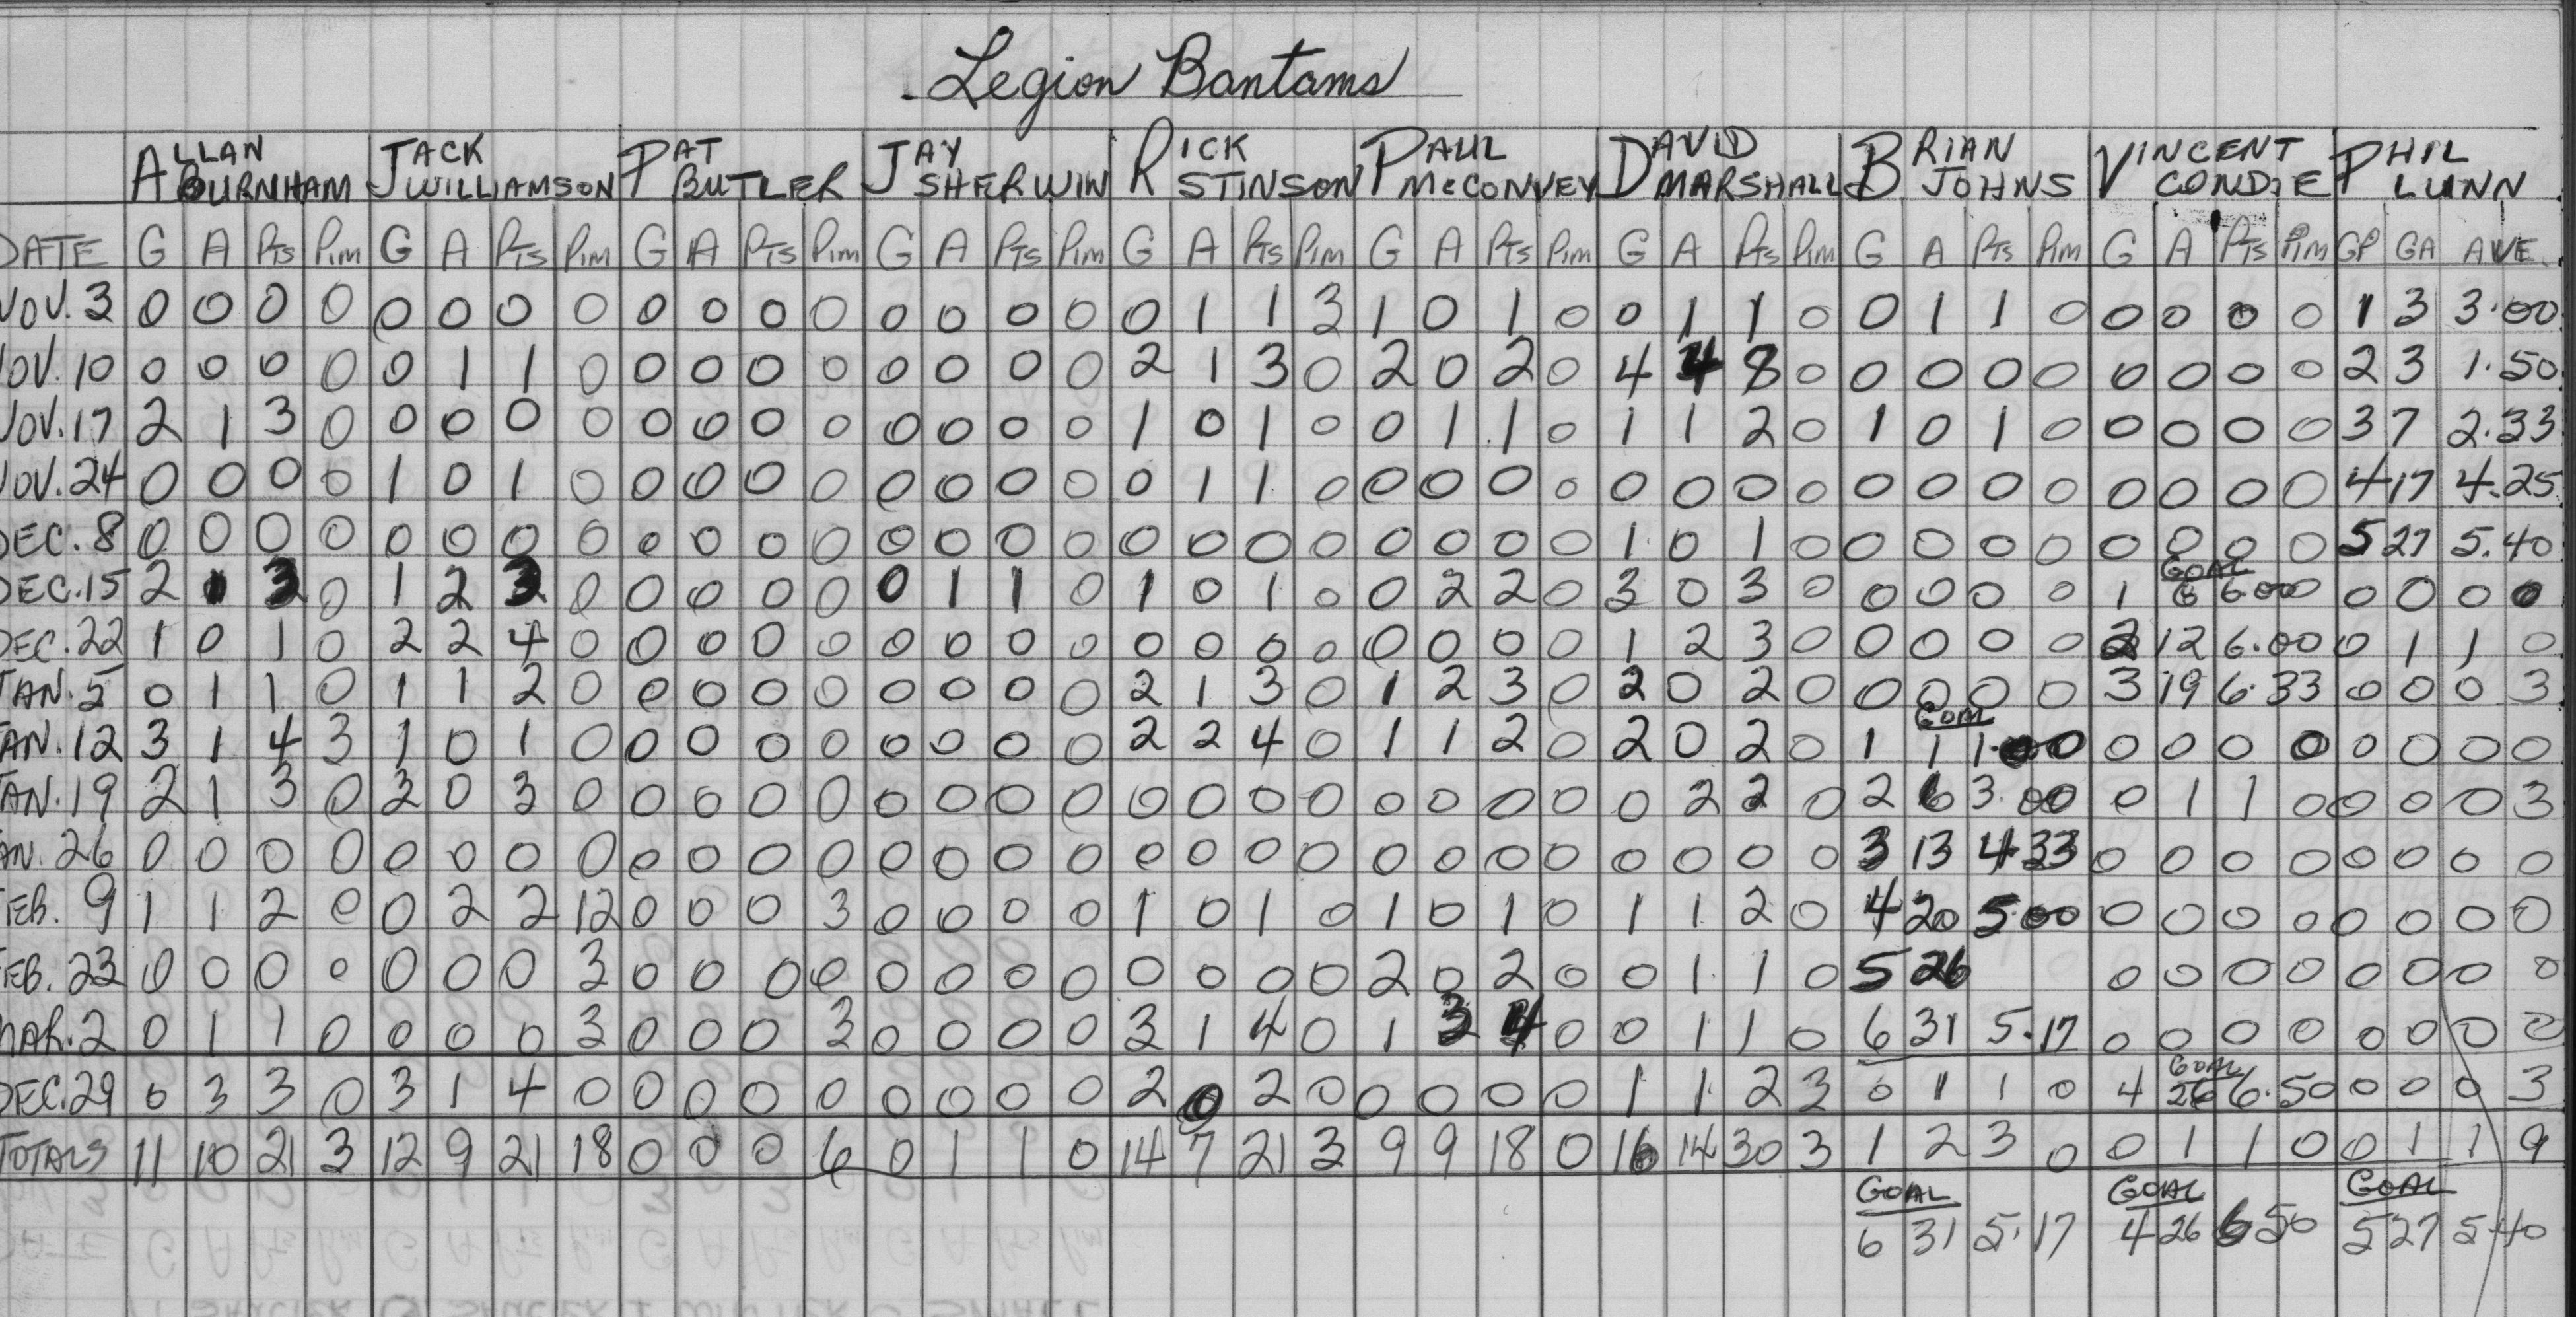 Legion Bantams
ALLAN BURNHAM JACK WILLIAMSON PAT BUTLER JAY SHERWIN RICK STINSON PAUL McCONVEY DAVID MARSHALL BRIAN JOHNS VINCENT CONDIE PHIL LUNN
DATE G A PTS PIM G A PTS PIM G A PTS PIM G A PTS PIM G A PTS PIM G A PTS PIM G A PTS PIM G A PTS PIM G A PTS PIM GP GA AVE.
NOV. 3 0 0 0 0 0 0 0 0 0 0 0 0 0 0 0 0 0 1 1 3 1 0 1 0 0 1 1 0 0 1 1 0 0 0 0 0 1 3 3.00
NOV. 10 0 0 0 0 0 1 1 0 0 0 0 0 0 0 0 0 2 1 3 0 2 0 2 0 4 4 8 0 0 0 0 0 0 0 0 0 2 3 1.50
NOV. 17 2 1 3 0 0 0 0 0 0 0 0 0 0 0 0 0 1 0 1 0 0 1 1 0 1 1 2 0 1 0 1 0 0 0 0 0 3 7 2.33
NOV. 24 0 0 0 0 1 0 1 0 0 0 0 0 0 0 0 0 0 1 1 0 0 0 0 0 0 0 0 0 0 0 0 0 0 0 0 0 4 17 4.25
DEC. 8 0 0 0 0 0 0 0 0 0 0 0 0 0 0 0 0 0 0 0 0 0 0 0 0 1 0 1 0 0 0 0 0 0 0 0 0 5 27 5.40
GOAL
DEC. 15 2 1 3 0 1 2 3 0 0 0 0 0 0 1 1 0 1 0 1 0 0 2 2 0 3 0 3 0 0 0 0 0 1 6 6.00 0 0 0 0
DEC. 22 1 0 1 0 2 2 4 0 0 0 0 0 0 0 0 0 0 0 0 0 0 0 0 0 1 2 3 0 0 0 0 0 2 12 6.00 0 1 1 0
JAN. 5 0 1 1 0 1 1 2 0 0 0 0 0 0 0 0 0 2 1 3 0 1 2 3 0 2 0 2 0 0 0 0 0 3 19 6.33 0 0 0 3
GOAL
JAN. 12 3 1 4 3 1 0 1 0 0 0 0 0 0 0 0 0 2 2 4 0 1 1 2 0 2 0 2 0 1 1 1.00 0 0 0 0 0 0 0 0
JAN. 19 2 1 3 0 3 0 3 0 0 0 0 0 0 0 0 0 0 0 0 0 0 0 0 0 0 2 2 0 2 6 3.00 0 1 1 0 0 0 0 3
JAN. 26 0 0 0 0 0 0 0 0 0 0 0 0 0 0 0 0 0 0 0 0 0 0 0 0 0 0 0 0 3 13 4.33 0 0 0 0 0 0 0 0
FEB. 9 1 1 2 0 0 2 2 12 0 0 0 3 0 0 0 0 1 0 1 0 1 0 1 0 1 1 2 0 4 20 5.00 0 0 0 0 0 0 0 0
FEB. 23 0 0 0 0 0 0 0 3 0 0 0 0 0 0 0 0 0 0 0 0 2 0 2 0 0 1 1 0 5 26 0 0 0 0 0 0 0 0
MAR. 2 0 1 1 0 0 0 0 3 0 0 0 3 0 0 0 0 3 1 4 0 1 3 4 0 0 1 1 0 6 31 5.17 0 0 0 0 0 0 0 0
GOAL
DEC. 29 0 3 3 0 3 1 4 0 0 0 0 0 0 0 0 0 2 0 2 0 0 0 0 0 1 1 2 3 0 1 1 0 4 26 6.50 0 0 0 3
TOTALS 11 10 21 3 12 9 21 18 0 0 0 6 0 1 1 0 14 7 21 3 9 9 18 0 16 14 30 3 1 2 3 0 0 1 1 0 0 1 1 9
GOAL GOAL GOAL
6 31 5.17 4 26 6 50 5 27 5 40